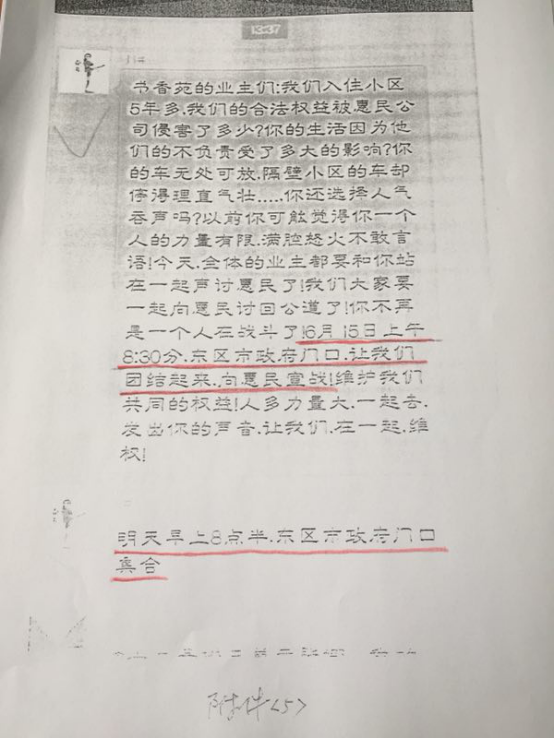 13:37
书香苑的业主们:我们入住小区
5年多.我们的合法权益被惠民公
司侵害了多少?你的生活因为他
们的不负责受了多大的影响?你
的车无处可放.隔壁小区的车却
停得理直气壮.....你还选择人气
吞声吗?以前你可能觉得你一个
人的力量有限.满腔怒火不敢言
语!今天.全体的业主都要和你站
在一起声讨惠民了!我们大家要
一起向惠民讨回公道了!你不再
是一个人在战斗了!6月15日上午
8:30分.东区市政府门口.让我们
团结起来.向惠民宣战!维护我们
共同的权益!人多力量大.一起去.
发出你的声音.让我们.在一起.维
权!
明天早上8点半.东区市政府门口
集合
附件<5>